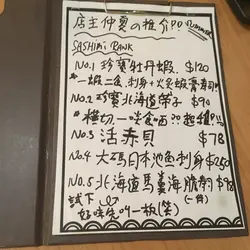 店主仲夏の推介!! Summer
SASHIMI RANK
No.1 珍寶牡丹蝦 $120
一蝦二食, 刺身+火炙蝦膏壽司!!
No.2 珍寶北海道帶子 $90
*橫切.一啖食晒??超正!!
No.3 活赤貝 $78
No.4 大碼日本池魚刺身 $250
No.5 北海道馬糞海膽 $98
試下 (一件)
好味先叫一板(笑)